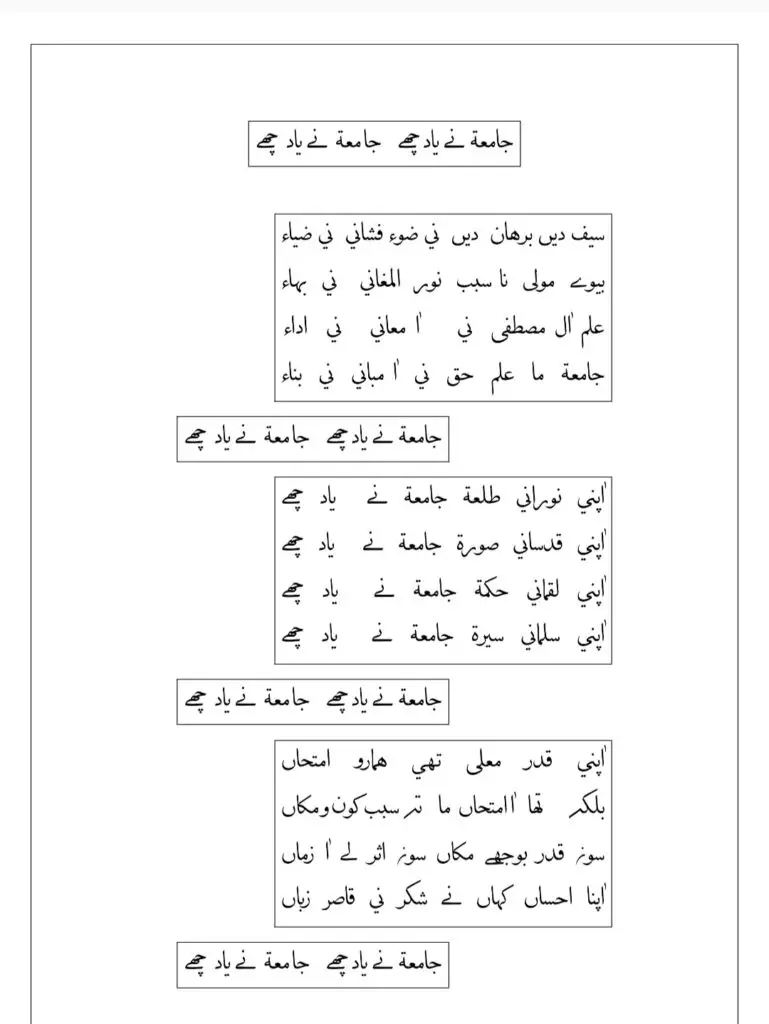 جامعة نے ياد چھے جامعة نے ياد چھے
سيف دیں برهان دیں ني ضوءِ فشاني ني ضياء
بيوے مولى نا سبب نور المغاني ني بهاء
علمِ اٰل مصطفى ني اٰ معاني ني اداء
جامعة ما علم حق ني اٰ مباني ني بناء
جامعة نے ياد چھے جامعة نے ياد چھے
اٰپني نوراني طلعة جامعة نے ياد چھے
اٰپني قدساني صورة جامعة نے ياد چھے
اٰپني لقماني حكمة جامعة نے ياد چھے
اٰپني سلماني سيرة جامعة نے ياد چھے
جامعة نے ياد چھے جامعة نے ياد چھے
اٰپني قدر معلى تهي همارو امتحاں
بلكہ تھا اٰ امتحاں ما تہ سبب كون ومكاں
سوںہ قدر بوجھے مكاں سوںہ اثر لے اٰ زماں
اٰپنا احساں كهاں نے شكر ني قاصر زباں
جامعة نے ياد چھے جامعة نے ياد چھے